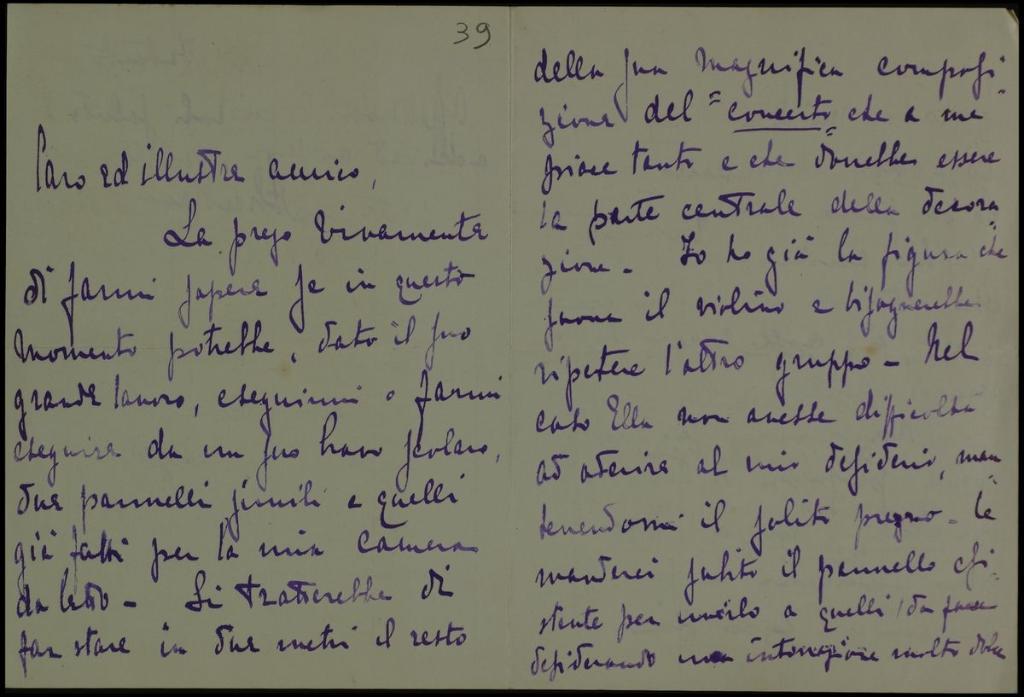 39
Caro ed illustre amico,
La prego vivamente
di farmi sapere se in questo
momento potrebbe, dato il suo
grande lavoro, eseguirmi o farmi
eseguire da un suo bravo scolaro,
due pannelli simili a quelli
già fatti per la mia camera
da letto - Si tratterebbe di
far stare in due metri il resto
della sua magnifica composi
zione del "concerto" che a me
piace tanto e che dovrebbe essere
la parte centrale della decora
zione - Io ho già la figura che
suona il violino e bisognerebbe
ripetere l'altro gruppo - Nel
caso Ella non avesse difficoltà
ad aderire al mio desiderio, man
tenendomi il solito prezzo - le
manderei subito il pannello esi
stente per unirlo a quelli da fare
desiderando una intonazione molto dolce